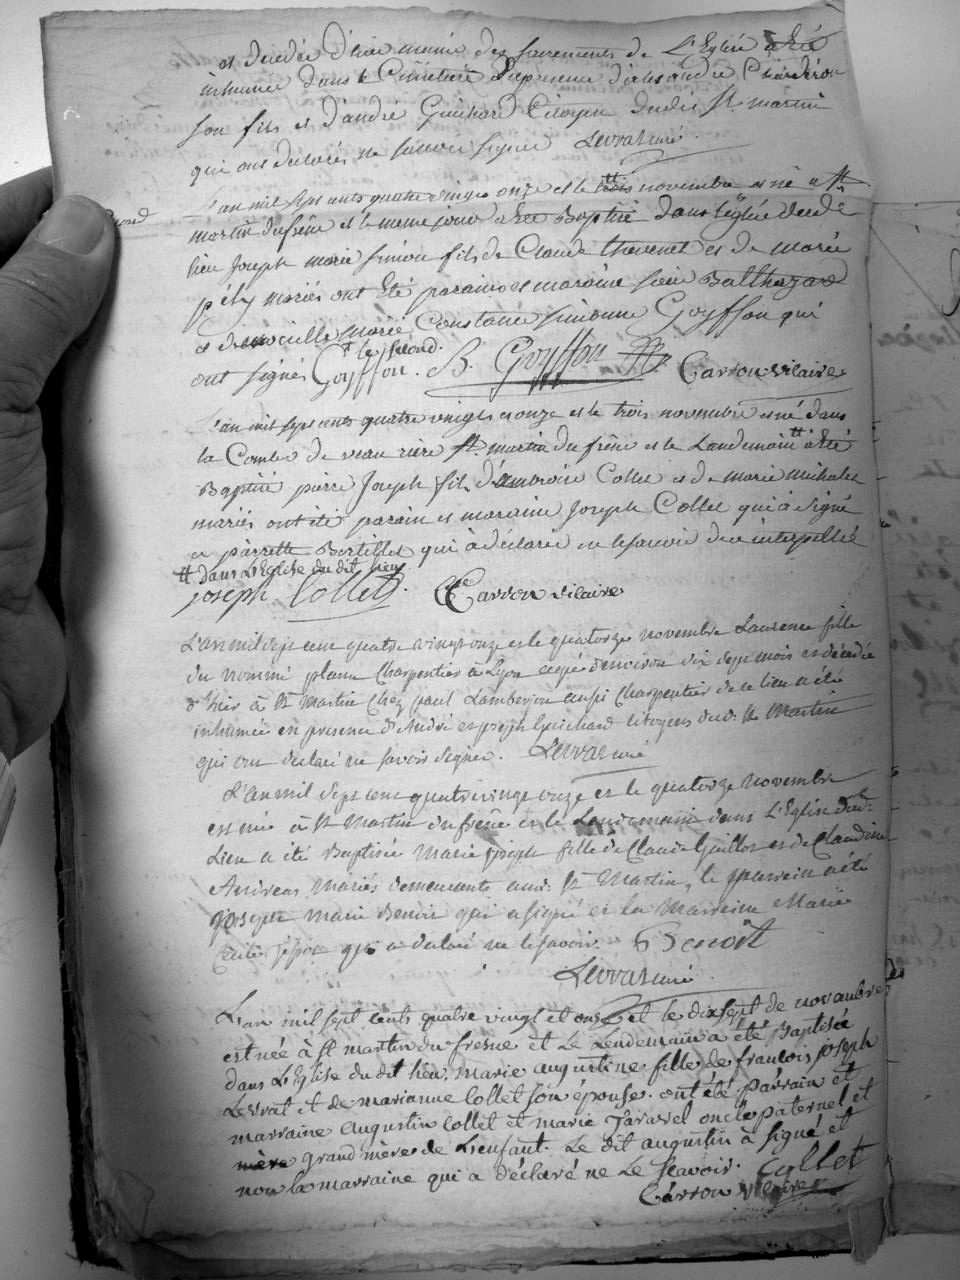 et decédée d'hier munie des sacrements de L'Eglise a été
inhumée dans le Cimetiere en presence d'alexandre
son fils et d'andré Guichard Citoyen dudit St martin
qui ont declarés ne savoir signer Levrat curé
L'an mil sept cents quatre vingts onze et le trois novembre est né a St
martin du frêne et le meme jour a été Baptisé dans l'église dudit
lieu Joseph marie simeon fils de Claude thevenet et de marie
pély mariés ont été parain et maraine sieur Balthazar
et demoiselle marie Constance simonne Goyffon qui
ont signés Goyffon. B. Goyffon Carron vicaire
L'an mil sept cents quatre vingts et onze et le trois novembre est né dans
la Combe de veau riere St. martin du frêne et le Landemain tt a été
Baptisé pierre Joseph fils d'ambroise Collet et de marie michalet
mariés ont été parain et maraine Joseph Collet qui a signé
et pierrette Bertillet qui a declaré ne le savoir de ce interpellée
tt dans L'Eglise du dit lieu
joseph Collet. Carron vicaire
L'an mil sept cent quatre vingt onze et le quatorze novembre Laurence fille
du nommé plane Charpentier à Lyon agée d'environ dix sept mois et décedée
d'hier à St Martin Chez paul Lamberjon aussi Charpentier de ce lieu a été
inhumée en presence d'André et joseph Guichard citoyens dud. St Martin
qui ont declaré ne savoir signer. Levrat curé
L'an mil sept cent quatre vingt onze et le quatorze novembre
est née à St Martin du frêne et le Landemain dans L'Eglise dud.
Lieu a été Baptisée Marie joseph fille de Claude Guillot et de Claudine
Andreas Mariés demeurants aud. St Martin, le parrein a été
joseph marie Benoit qui a signé et la Marreine Marie
qui a declaré ne le savoir. Benoit
Levrat curé
L'an mil sept cents quatre vingt et onze et le dix sept de novambre
est née à St martin du fresne et Le Lendemain a été Baptisée
dans L'Eglise du dit lieu. Marie augustine fille de francois joseph
Levrat et de marianne Collet son épouse. ont été parrain et
marraine augustin Collet et marie Taravel oncle paternel et
mère grand mère de L'enfant. Le dit augustin à signé et
non la marraine qui a déclaré ne Le scavoir. Collet
Carron vicaire